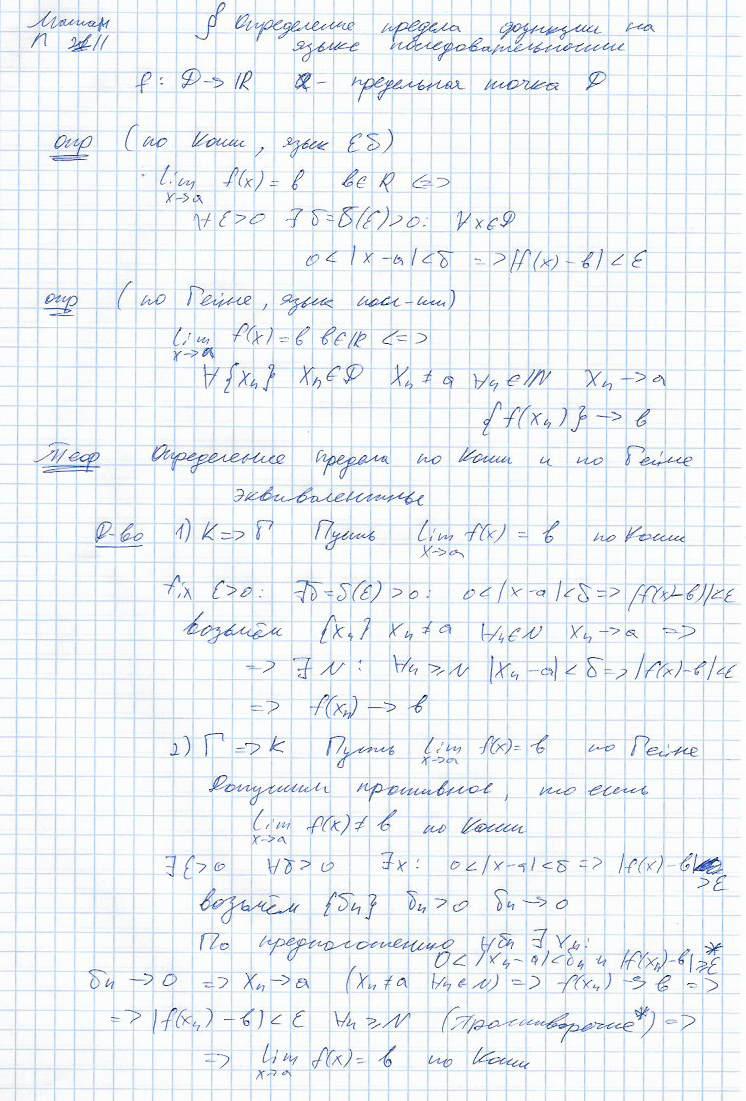 Матан § Определение предела функции на
Л 11 языке последовательности
f: D → ℝ a - предельная точка D
опр (по Коши, язык ε δ)
lim f(x) = b b ∈ R <=>
x→a
∀ ε>0 ∃ δ=δ(ε)>0: ∀x∈D
0 < |x-a| < δ => |f(x)-b| < ε
опр (по Гейне, язык посл-ти)
lim f(x) = b b∈ℝ <=>
x→a
∀ {xₙ} xₙ∈D xₙ ≠ a ∀n∈ℕ xₙ → a
{f(xₙ)} → b
Теор Определение предела по Коши и по Гейне
эквивалентны
D-во 1) К => Г Пусть lim f(x) = b по Коши
x→a
fix ε>0: ∃δ=δ(ε)>0: 0<|x-a|<δ => |f(x)-b)|<ε
возьмём {xₙ} xₙ≠a ∀n∈N xₙ→a =>
=> ∃ N: ∀n ≥ N |xₙ-a|<δ => |f(x)-b|<ε
=> f(xₙ) → b
2) Г => К Пусть lim f(x) = b по Гейне
x→a
Допустим противное, то есть
lim f(x) ≠ b по Коши
x→a
∃ε>0 ∀δ>0 ∃x: 0<|x-a|<δ => |f(x)-b|
≥ε
возьмём {δₙ} δₙ>0 δₙ→0
По предположению ∀δₙ ∃ xₙ:
0<|xₙ-a|<δₙ и |f(xₙ)-b|≥ε *
δₙ → 0 => xₙ→a (xₙ≠a ∀n∈N) => f(xₙ) → b =>
=> |f(xₙ)-b|<ε ∀n≥N (Противоречие*) =>
=> lim f(x) = b по Коши
x→a